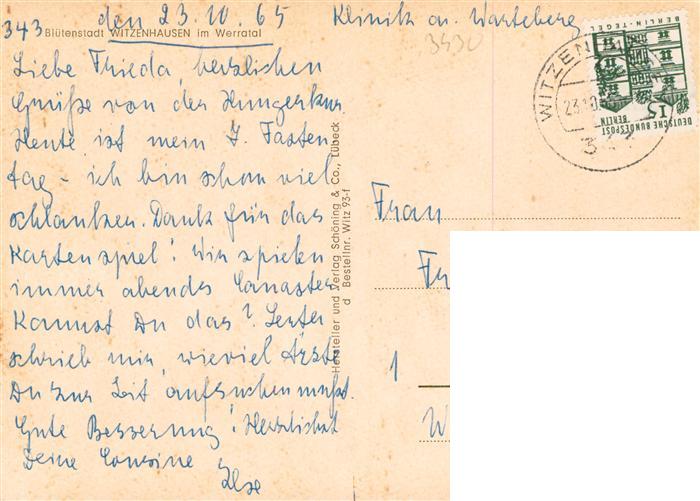 343 den 23.10.65 Klinik am Warteberg
Blütenstadt WITZENHAUSEN im Werratal
3430
Liebe Frieda, herzlichen
Grüße von der Hungerkur.
Heute ist mein 7. Fasten
tag - ich bin schon viel
schlanker. Dank für das
Kartenspiel! Wir spielen
immer abends Canaster.
Kannst Du das?
schrieb mir, wieviel Ärzte
Du zur Zeit aufsuchen mußt.
Gute Besserung! Herzlichst
Deine Cousine
Ilse
Hersteller und Verlag Schöning & Co., Lübeck
Bestellnr. Witz 93-f
Frau
Fr
1
W
WITZEN
23.10
343
BERLIN-TEGEL
15
DEUTSCHE BUNDESPOST
BERLIN